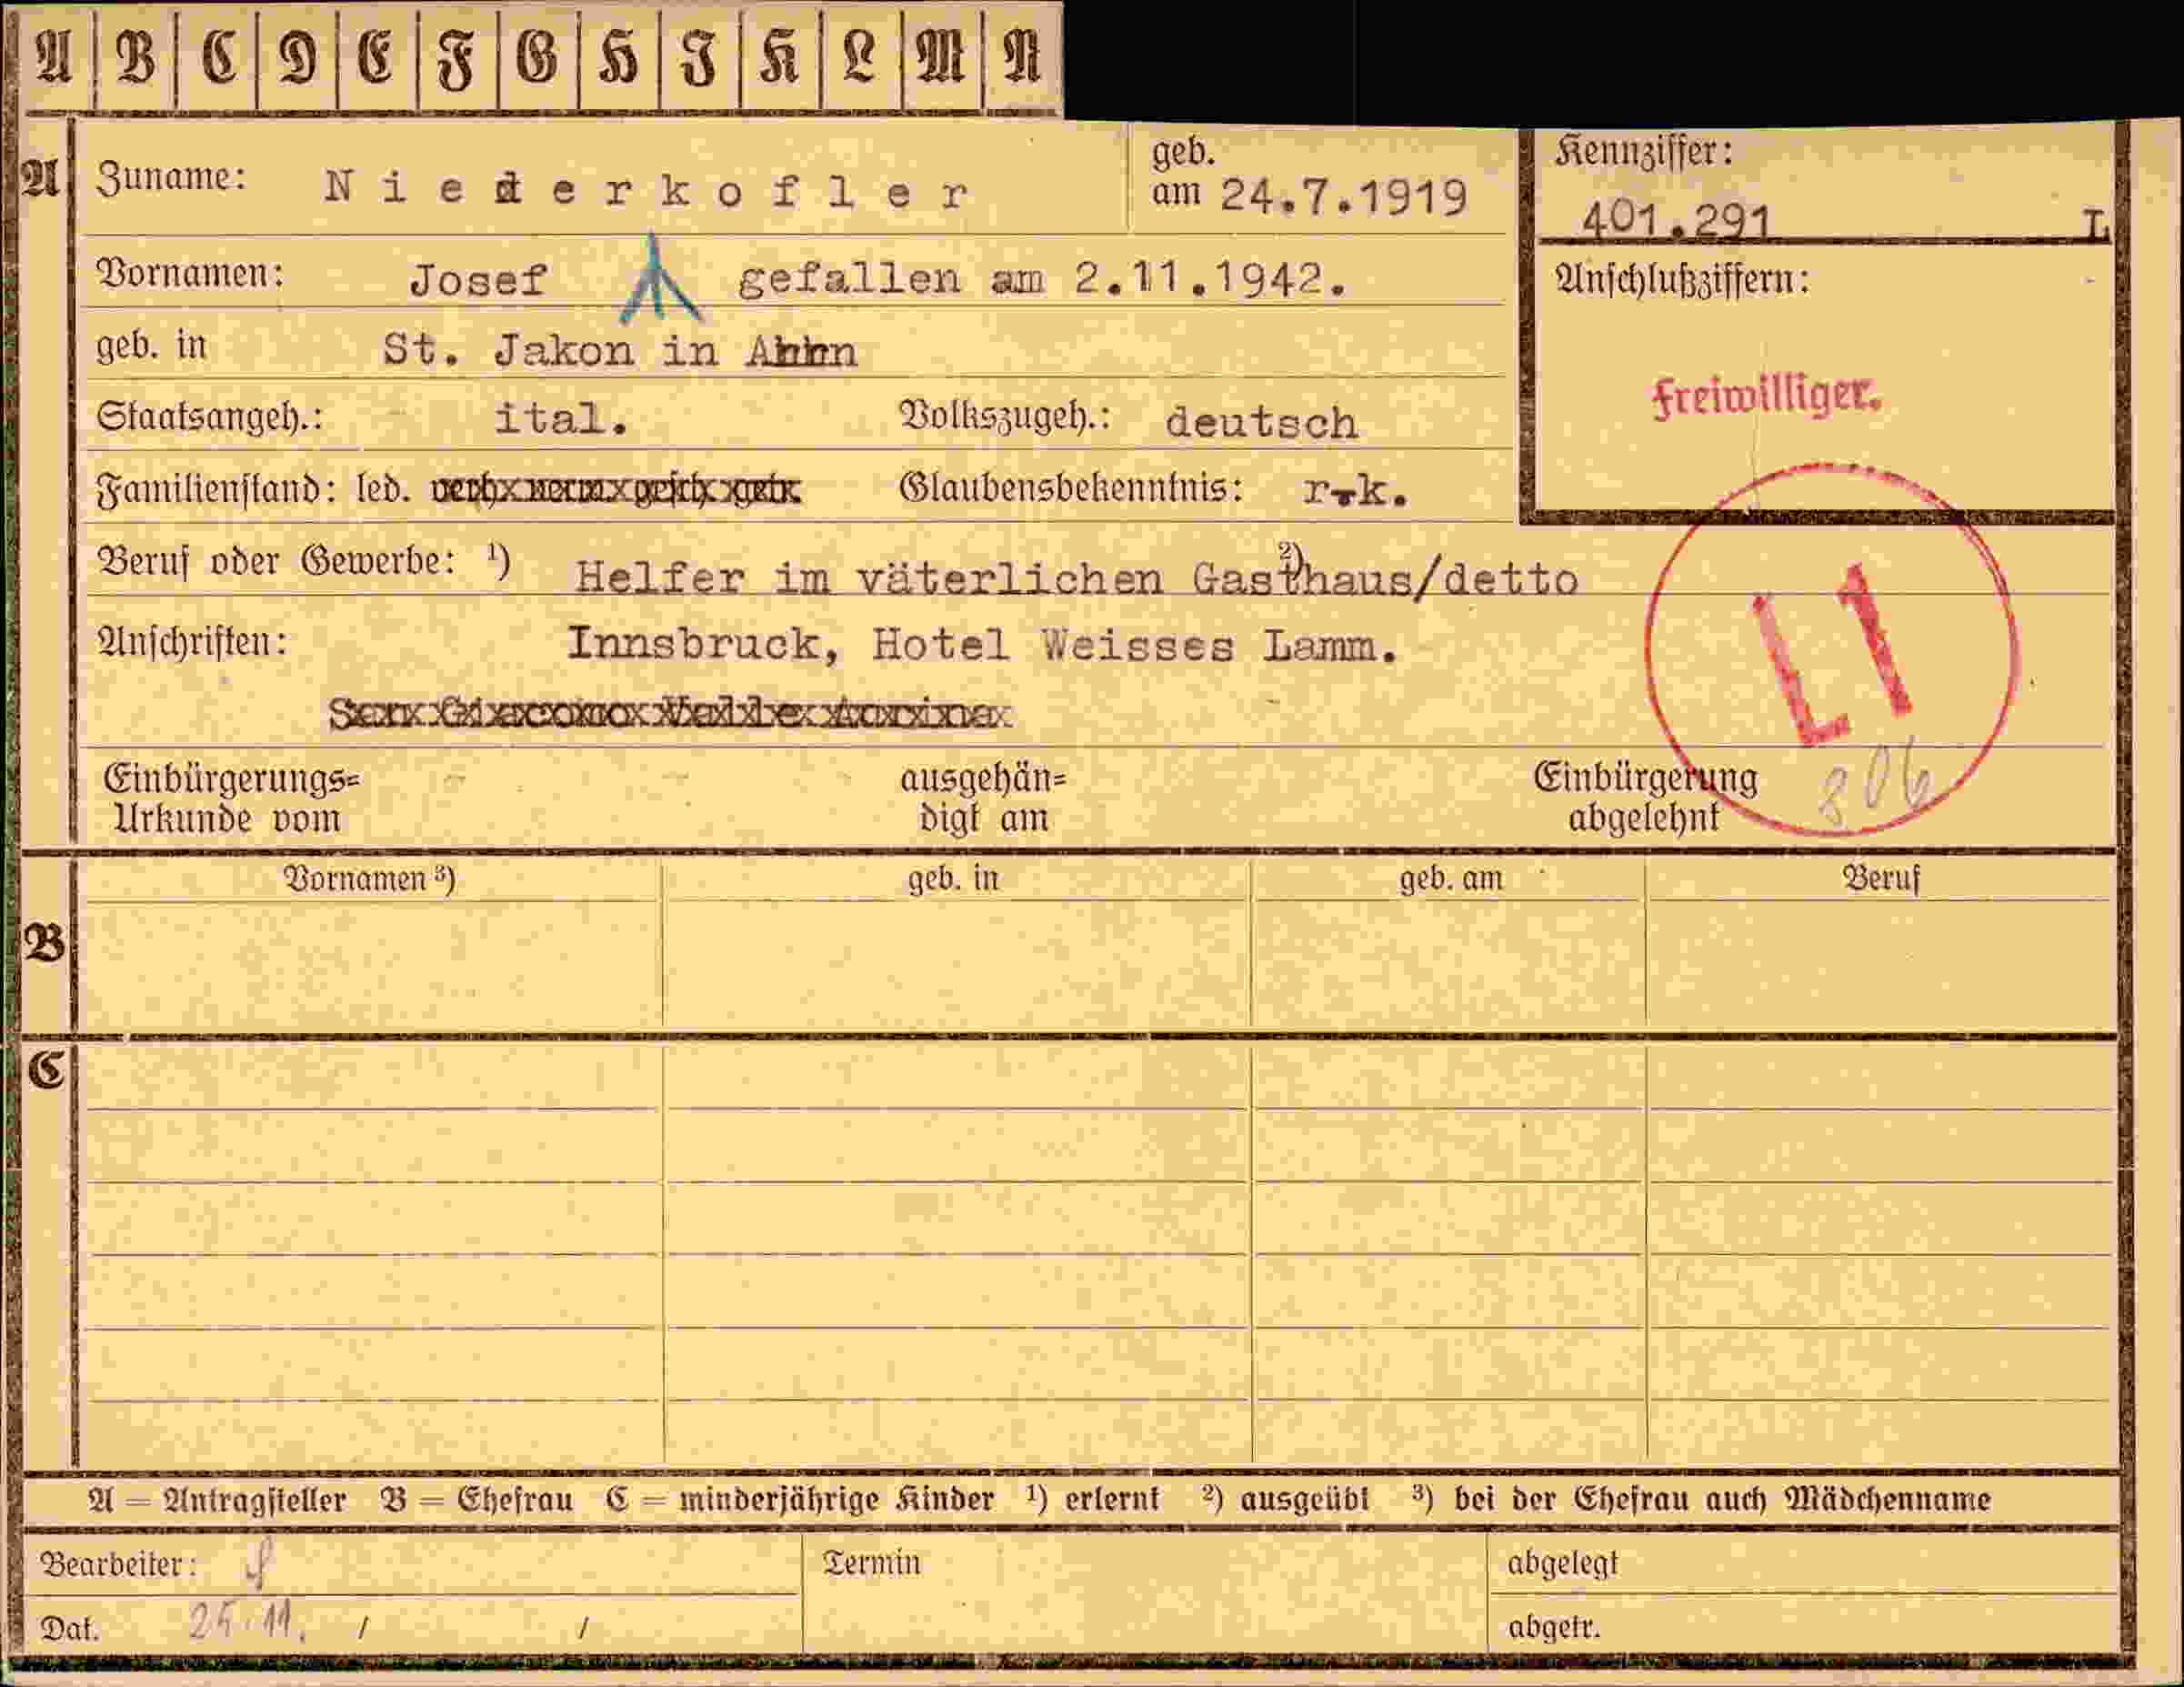 A B C D E F G H I K L M N
A Zuname: Niederkofler geb. am 24.7.1919 Kennziffer: 401.291 L
Vornamen: Josef gefallen am 2.11.1942. Anschlußziffern:
geb. in St. Jakon in Ahrn
Freiwilliger.
Staatsangeh.: ital. Volkszugeh.: deutsch
Familienstand: led. verh. verw. gesch. getr. Glaubensbekenntnis: r.k.
Beruf oder Gewerbe: ¹) Helfer im väterlichen Gasthaus/detto ²)
Anschriften: Innsbruck, Hotel Weisses Lamm.
San Giacomo Valle Aurina
L1
Einbürgerungs= ausgehän= Einbürgerung
Urkunde vom digt am abgelehnt
806
Vornamen ³) geb. in geb. am Beruf
B
C
A = Antragsteller B = Ehefrau C = minderjährige Kinder ¹) erlernt ²) ausgeübt ³) bei der Ehefrau auch Mädchenname
Bearbeiter: Termin abgelegt
Dat. 25.11. / / abgetr.